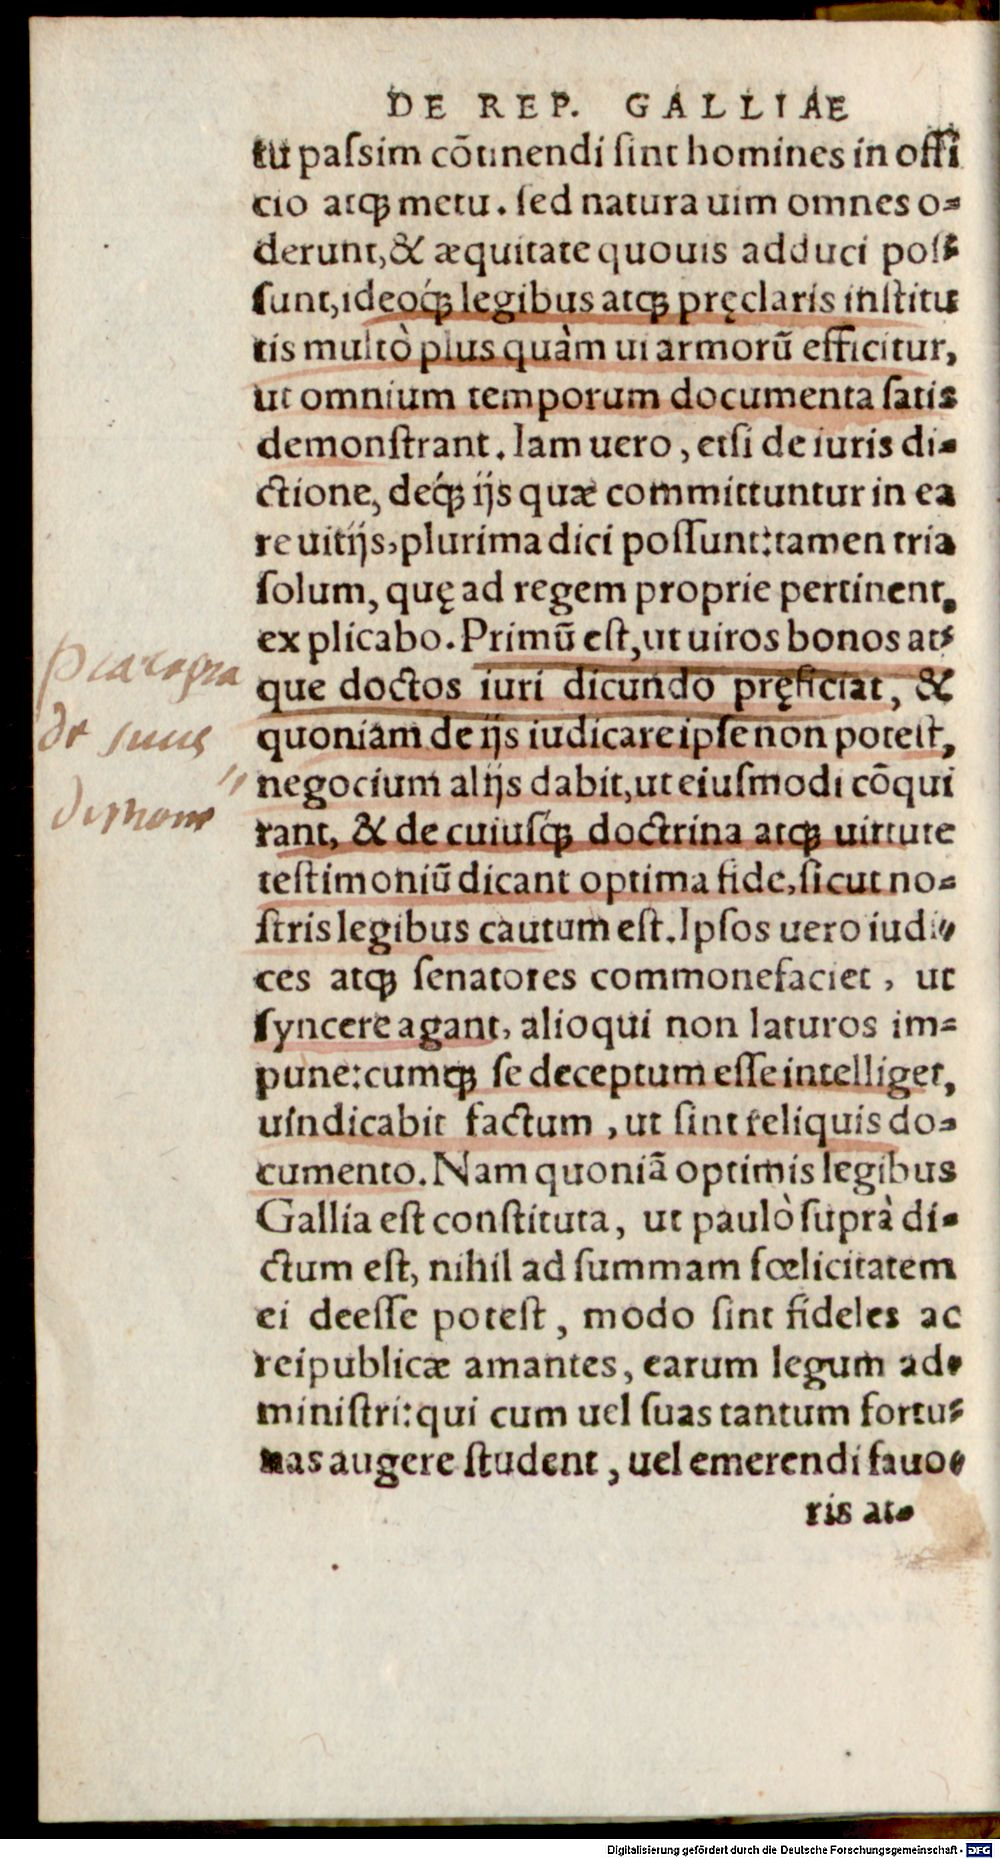 DE REP. GALLIAE
tu paſsim cõtinendi ſint homines in offi
cio atq́ꝫ metu. ſed natura uim omnes o=
derunt, & æquitate quouis adduci poſ=
ſunt, ideoq́ꝫ legibus atqꝫ pręclaris inſtitu
tis multò plus quàm ui armorũ efficitur,
ut omnium temporum documenta ſatis
demonſtrant. Iam uero, etſi de iuris di=
ctione, deq́ꝫ ijs quæ committuntur in ea
re uitijs, plurima dici poſſunt: tamen tria
ſolum, quę ad regem proprie pertinent,
explicabo. Primũ eſt, ut uiros bonos at=
que doctos iuri dicundo pręficiat, &
quoniam de ijs iudicare ipſe non poteſt,
negocium alijs dabit, ut eiuſmodi cõqui
rant, & de cuiuſq́ꝫ doctrina atqꝫ uirtute
teſtimoniũ dicant optima fide, ſicut no=
ſtris legibus cautum eſt. Ipſos uero iudi=
ces atqꝫ ſenatores commonefaciet, ut
ſyncere agant, alioqui non laturos im=
pune: cumqꝫ ſe deceptum eſſe intelliget,
uindicabit factum, ut ſint reliquis do=
cumento. Nam quoniã optimis legibus
Gallia eſt conſtituta, ut paulò ſuprà di=
ctum eſt, nihil ad ſummam fœlicitatem
ei deeſſe poteſt, modo ſint fideles ac
reipublicæ amantes, earum legum ad=
miniſtri: qui cum uel ſuas tantum fortu=
nas augere ſtudent, uel emerendi fauo=
ris at=
de iuris
Digitalisierung gefördert durch die Deutsche Forschungsgemeinschaft - DFG